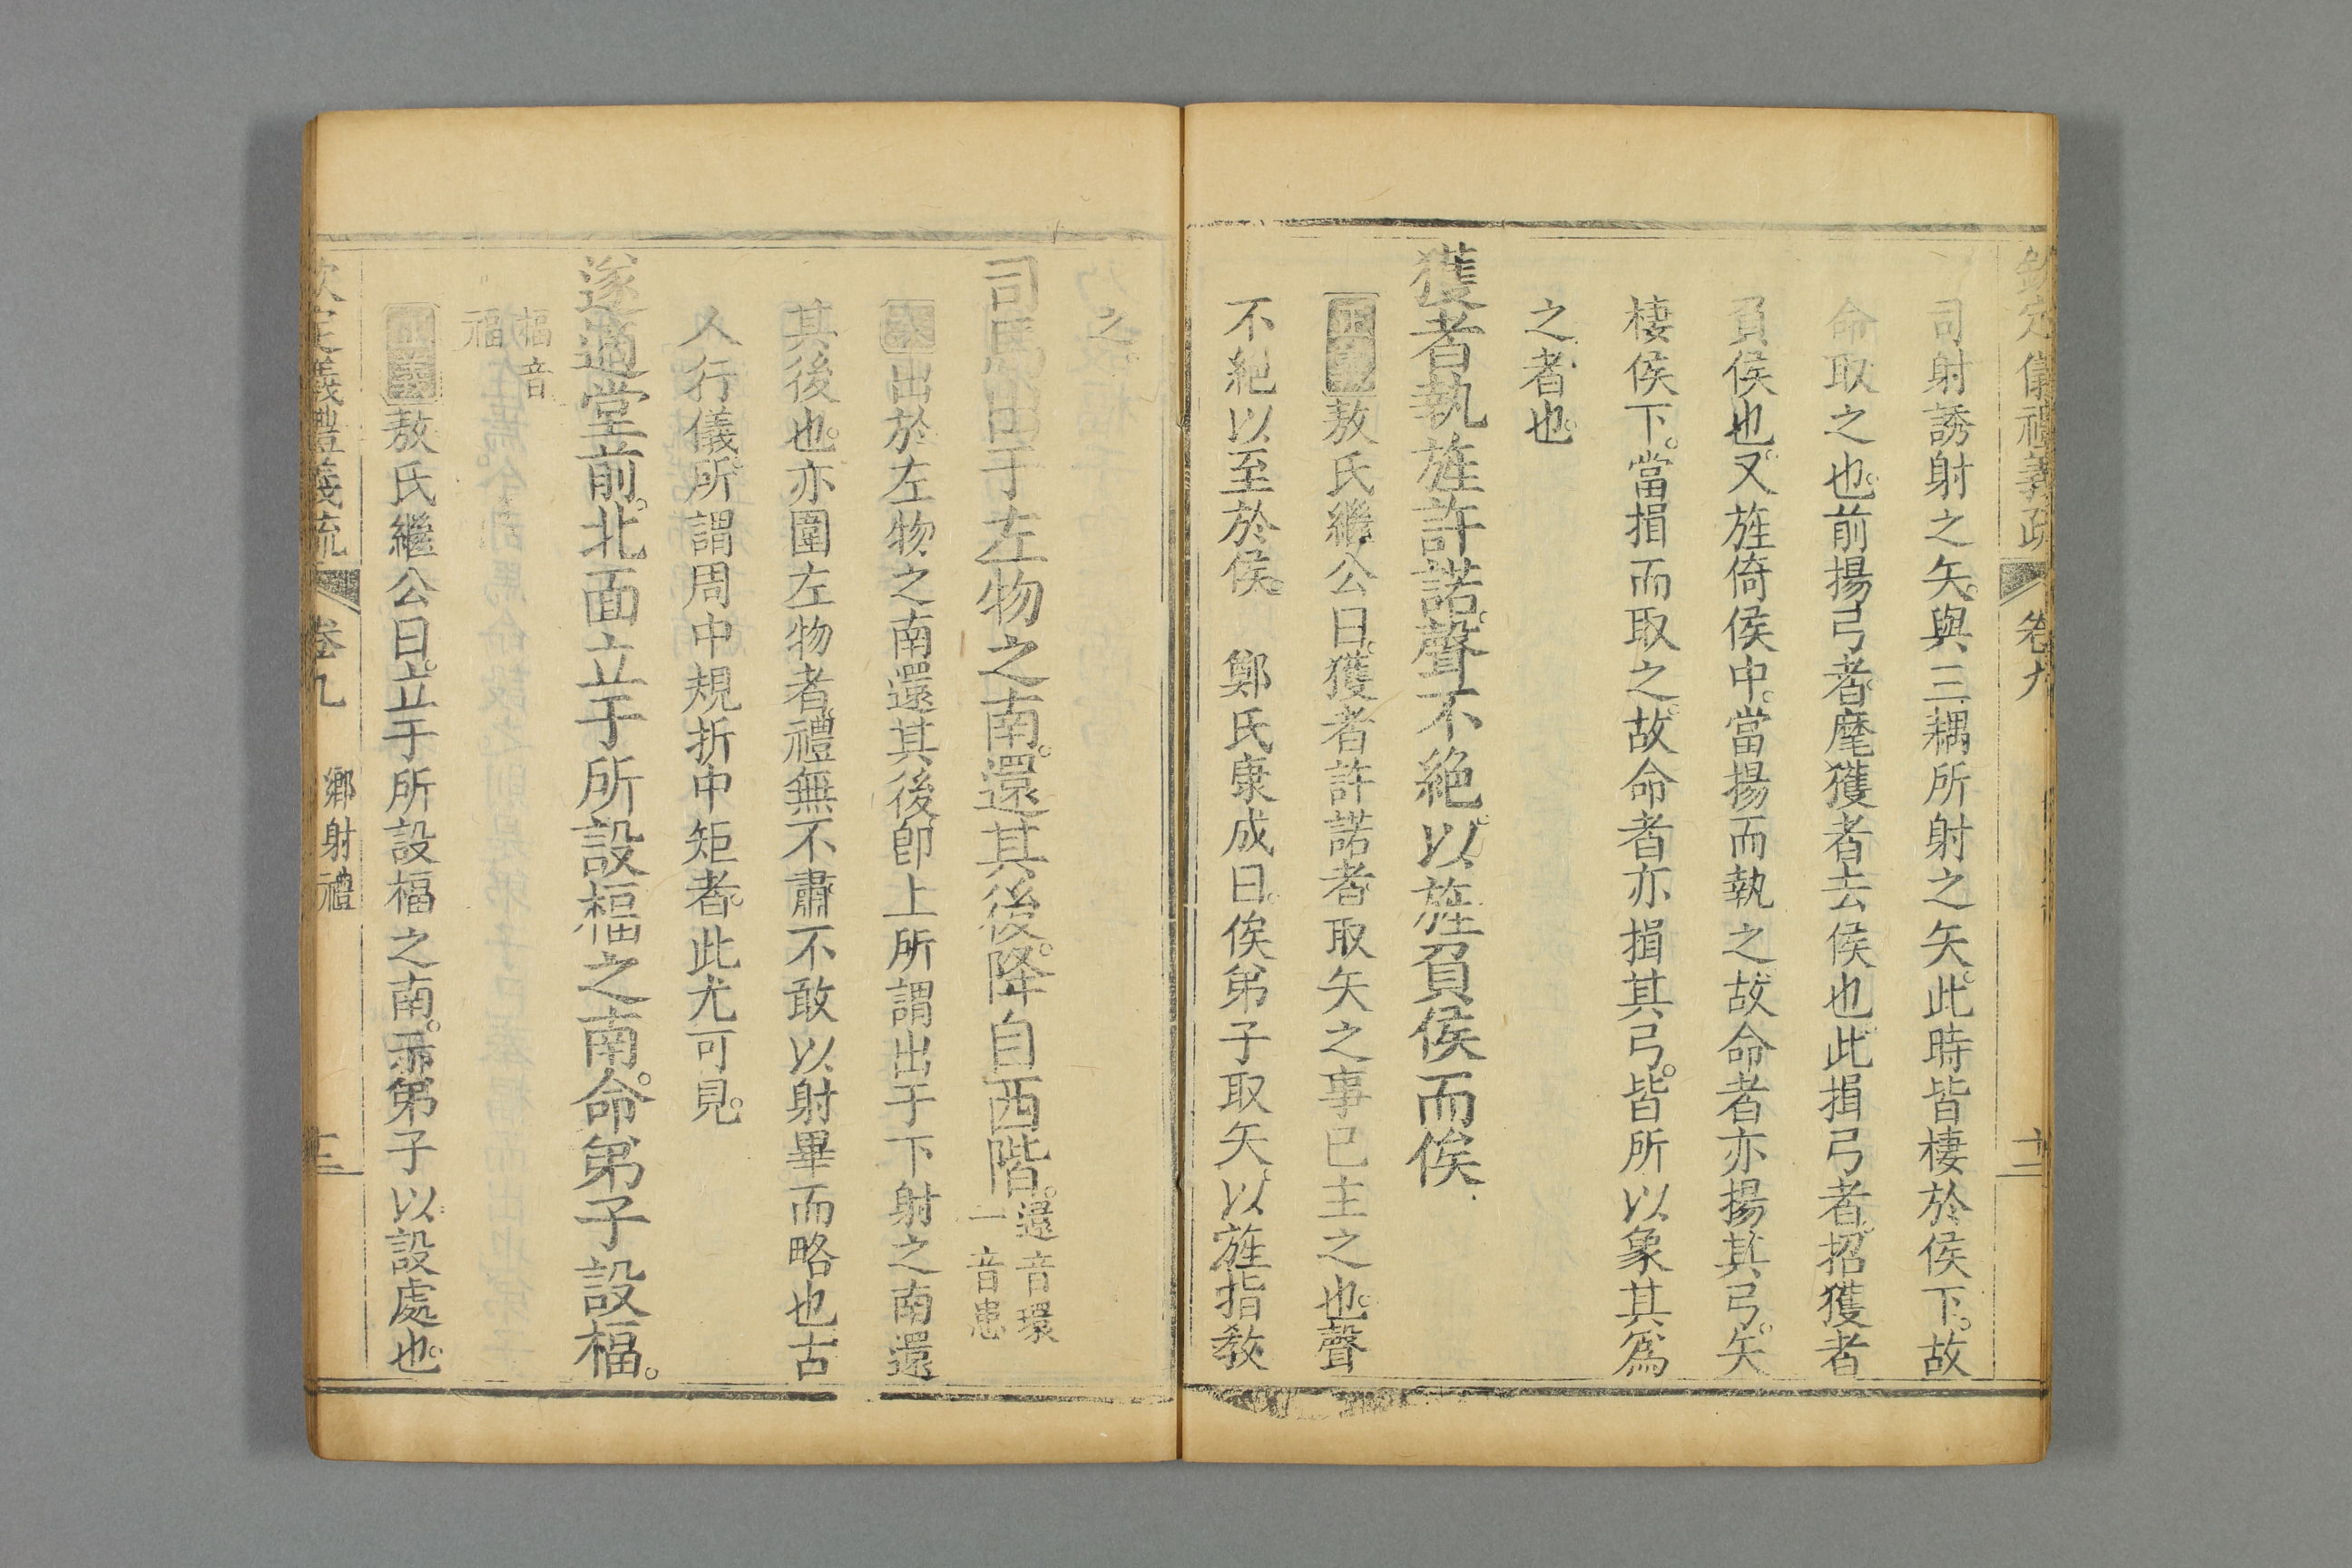 欽定儀禮義疏 卷九 十二
司射誘射之矢。與三耦所射之矢。此時皆棲於侯下。故
命取之也。前揚弓者。麾獲者去侯也。此揖弓者。招獲者
負侯也。又旌倚侯中。當揚而執之。故命者亦揚其弓。矢
棲侯下。當揖而取之。故命者亦揖其弓。皆所以象其爲
之者也。
獲者執旌許諾。聲不絕。以旌負侯而俟。
正義敖氏繼公曰。獲者許諾者。取矢之事已主之也。聲
不絕以至於侯。 鄭氏康成曰。俟弟子取矢。以旌指教
之。
司馬出于左物之南。還其後。降自西階。還音環 一音患
案出於左物之南還其後。卽上所謂出于下射之南還
其後也。亦圍左物者。禮無不肅。不敢以射畢而略也。古
人行儀。所謂周中規折中矩者。此尤可見。
遂適堂前。北面立于所設楅之南。命弟子設楅。
楅音
福
正義敖氏繼公曰。立于所設楅之南。示弟子以設處也。
欽定儀禮義疏 卷九 鄉射禮 十三